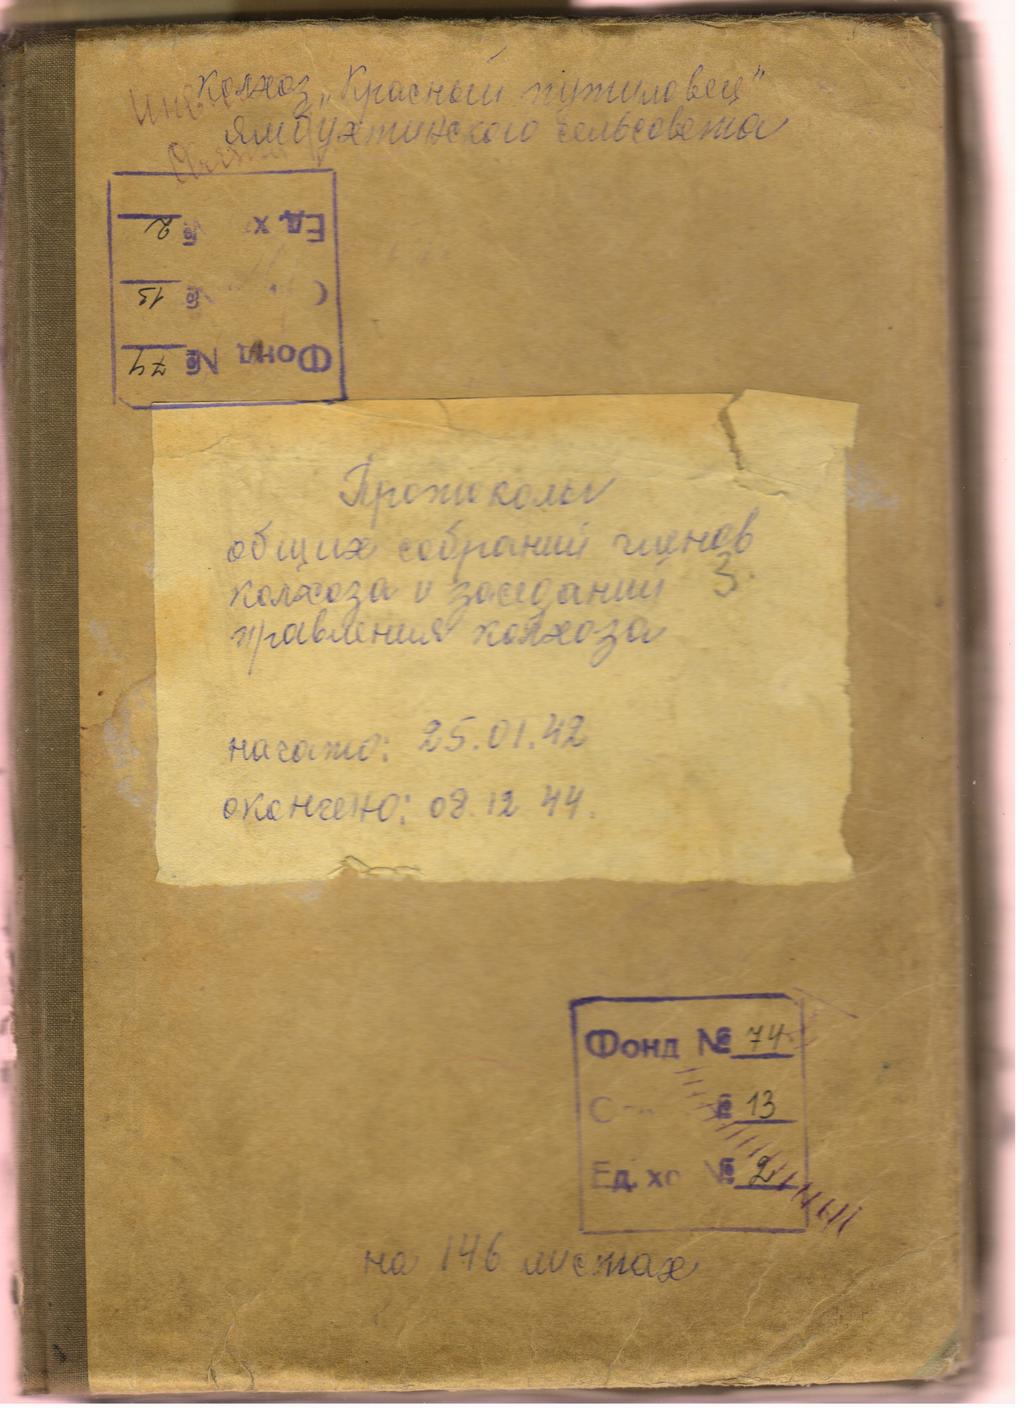 Колхоз „Красный путиловец"
Ямбухтинского сельсовета
Фонд № 74
№ 13
Ед. х № 2
Протоколы
общих собраний членов
колхоза и заседаний 3.
правления колхоза
начато: 25.01.42
окончено: 08.12 44.
Фонд № 74
О № 13
Ед. хр № 2
на 146 листах